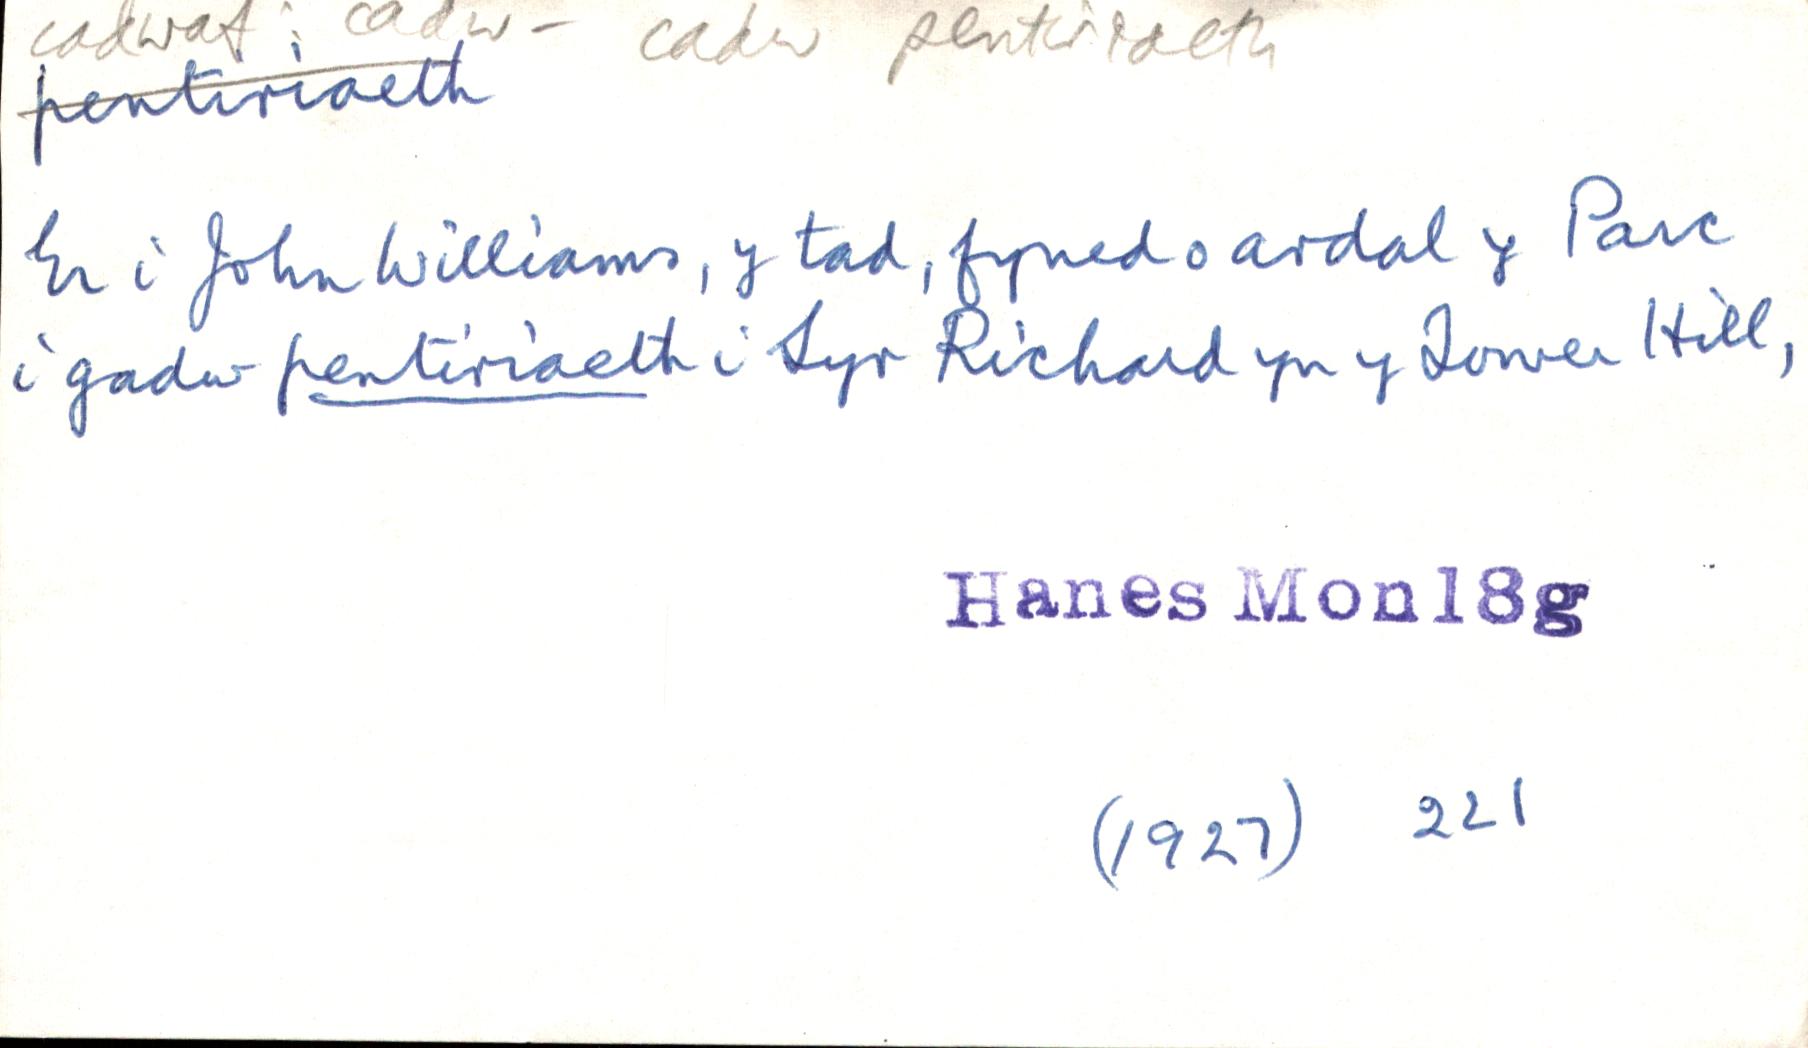 cadwaf: cadw - cadw pentiriaeth
pentiriaeth
Er i John Williams, y tad, fyned o ardal y Parc
i gadw pentiriaeth i Syr Richard yn y Tower Hill,
Hanes Mon18g
(1927) 221